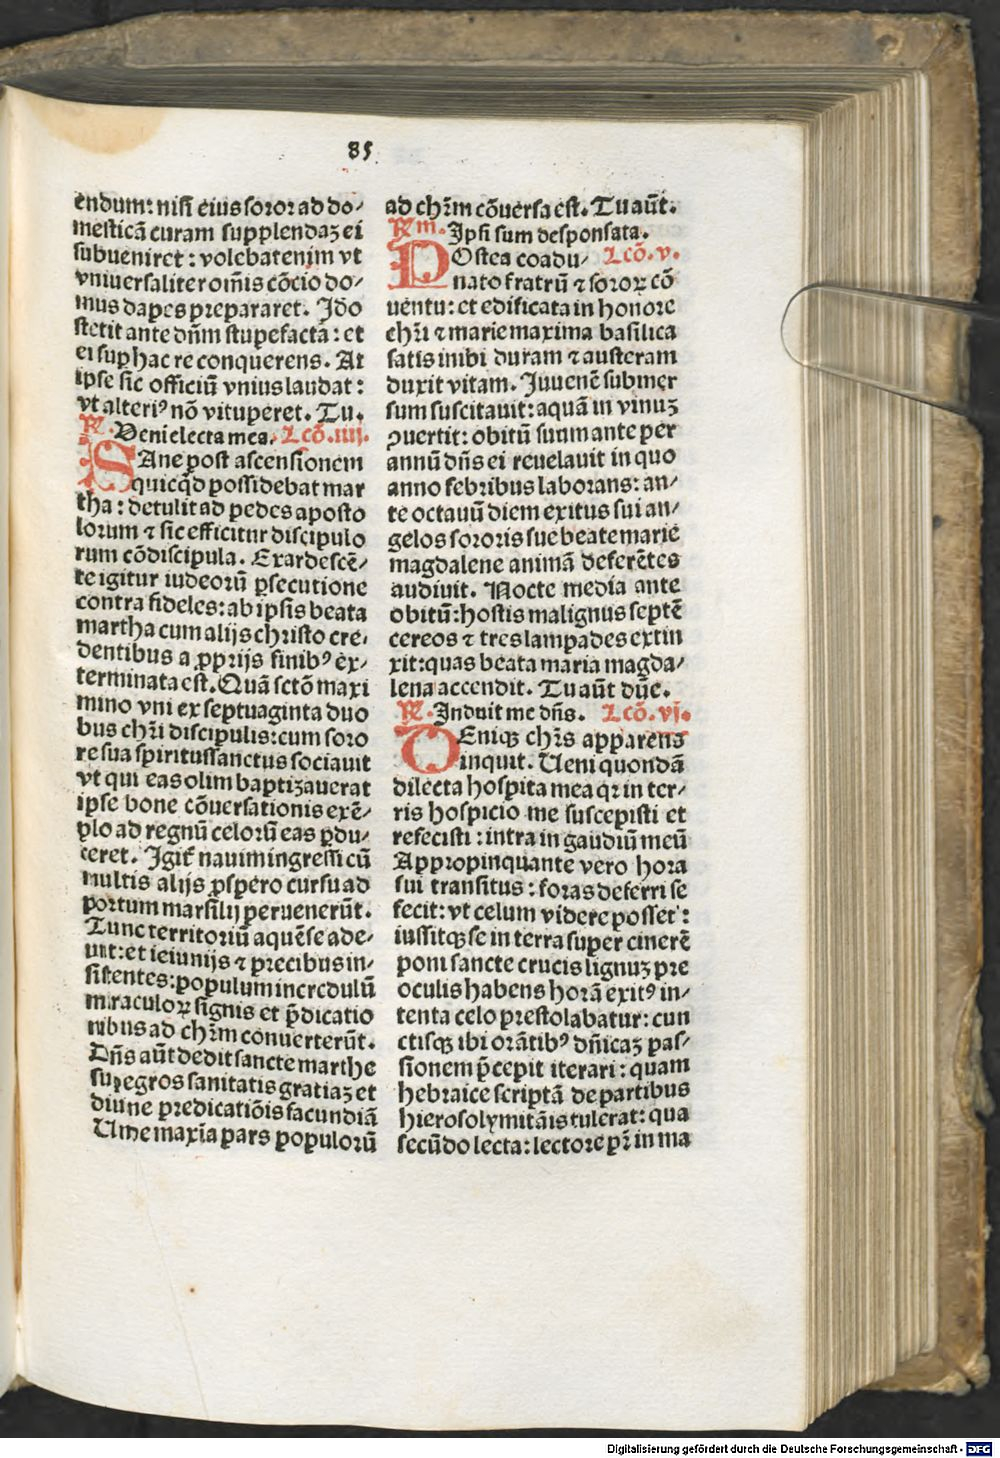 85
endum: nisi eius soror ad do⸗
mesticā curam supplendaꝫ ei
subueniret : volebat enim vt
vniuersaliter oīs cōcio do⸗
mus dapes prepararet. Jdo
stetit ante dn̄m stupefacta : et
ei suꝑ hac re conquerens. At
ipse sic officiū vnius laudat :
vt alteriꝰ nō vituperet. Tu.
℟. Veni electa mea. Lcō. iiij.
SAne post ascensionem
quicq̄d possidebat mar
tha : detulit ad pedes aposto
lorum ⁊ sic efficitur discipulo
rum cōdiscipula. Exardescē⸗
te igitur iudeorū ꝑsecutione
contra fideles: ab ipsis beata
martha cum alijs christo cre⸗
dentibus a ꝓprijs finibꝰ ex⸗
terminata est. Quā sctō maxi
mino vni ex septuaginta duo
bus chr̄i discipulis: cum soro
re sua spiritussanctus sociauit
vt qui eas olim baptizauerat
ipse bone cōuersationis exē⸗
plo ad regnū celorū eas ꝑdu⸗
ceret. Jgit̄ nauim ingressi cū
multis alijs ꝓspero cursu ad
portum marsilij peruenerūt.
Tunc territoriū aquēse ade⸗
unt: et ieiunijs ⁊ precibus in⸗
sistentes: populum incredulū
miraculoꝝ signis et p̄dicatio
nibus ad chr̄m conuerterūt.
Dn̄s aūt dedit sancte marthe
suꝑ egros sanitatis gratiaꝫ et
diuine predicatiōis facundiā
Vnde maxīa pars populorū
ad chr̄m cōuersa est. Tu aūt.
℟m. Jpsi sum desponsata.
POstea coadu⸗ Lcō. v.
nato fratrū ⁊ soroꝝ cō
uentu: et edificata in honore
chr̄i ⁊ marie maxima basilica
satis inibi duram ⁊ austeram
duxit vitam. Juuenē submer
sum suscitauit: aquā in vinuꝫ
ꝯuertit: obitū suum ante per
annū dn̄s ei reuelauit in quo
anno febribus laborans: an⸗
te octauū diem exitus sui an⸗
gelos sororis sue beate marie
magdalene animā deferētes
audiuit. Nocte media ante
obitū: hostis malignus septē
cereos ⁊ tres lampades extin
xit: quas beata maria magda⸗
lena accendit. Tu aūt dn̄e.
℟. Jnduit me dn̄s. Lcō. vj.
DEniqꝫ chr̄s apparens
inquit. Ueni quondā
dilecta hospita mea qꝛ in ter⸗
ris hospicio me suscepisti et
refecisti : intra in gaudiū meū
Appropinquante vero hora
sui transitus : foras deferri se
fecit: vt celum videre posset :
iussitqꝫ se in terra super cinerē
poni sancte crucis lignuꝫ pre
oculis habens horā exitꝰ in⸗
tenta celo prestolabatur: cun
ctisqꝫ ibi orātibꝰ dn̄icaꝫ pas⸗
sionem p̄cepit iterari : quam
hebraice scriptā de partibus
hierosolymitāis tulerat: qua
secūdo lecta: lectore pr̄ in ma
Digitalisierung gefördert durch die Deutsche Forschungsgemeinschaft - DFG